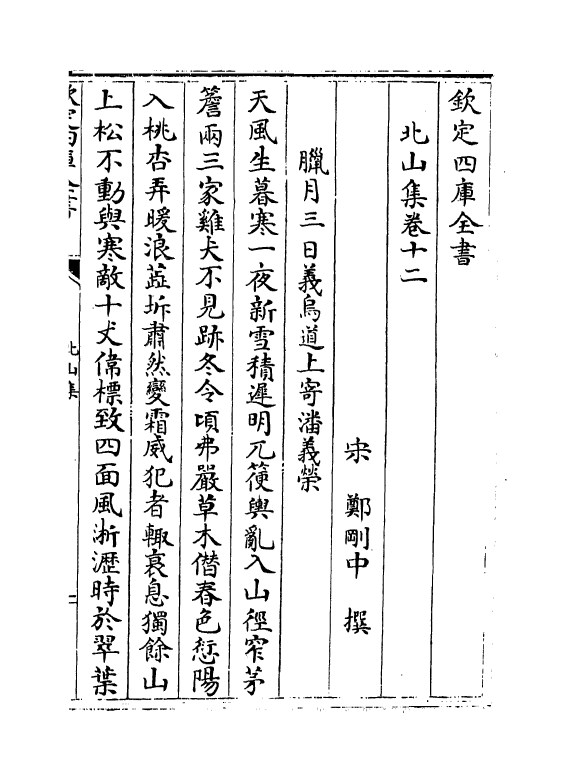 欽定四庫全書
北山集卷十二
宋 鄭剛中 撰
臘月三日義烏道上寄潘義榮
天風生暮寒一夜新雪積遲明兀箯輿亂入山徑窄茅
簷兩三家雞犬不見跡冬令頃弗嚴草木偕春色愆陽
入桃杏弄暖浪蕋坼肅然變霜威犯者輙衰息獨餘山
上松不動與寒敵十丈偉標致四面風淅瀝時於翠葉
北山集